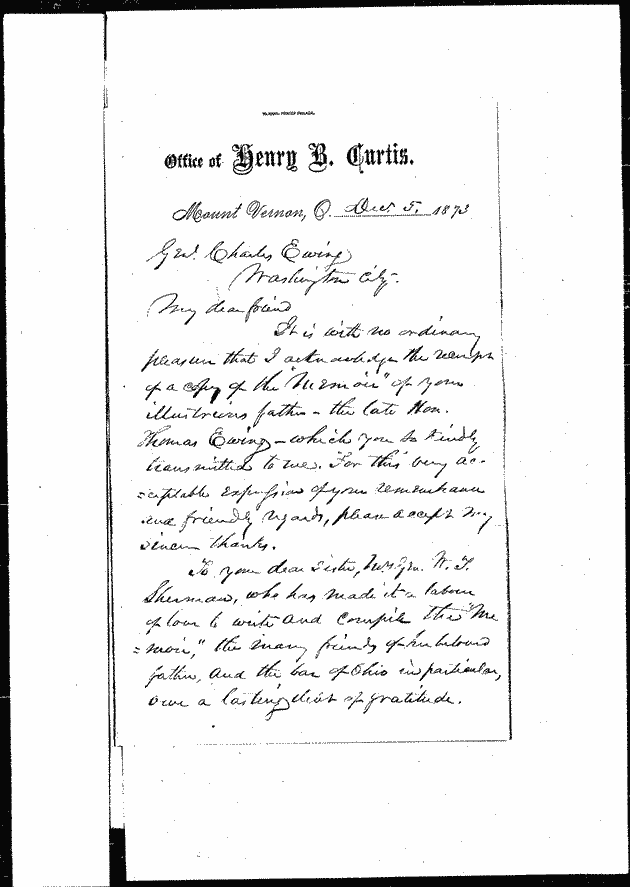 Office of Henry B. Curtis.
Mount Vernon, O. Dec. 5, 1873
Genl. Charles Ewing
Washington City.
My dear friend
It is with no ordinary
pleasure that I acknowledge the receipt
of a copy of the "Memoir" of your
illustrious father – the late Hon.
Thomas Ewing – which you so kindly
transmitted to me. For this very ac-
=ceptable expression of your remembrance
and friendly regards, please accept my
sincere thanks.
To your dear sister, Mrs. Gen. W. T.
Sherman, who has made it a labour
of love to write and compile this "Me
=moir," the many friends of her beloved
father, and the bar of Ohio in particular,
owe a lasting debt of gratitude.